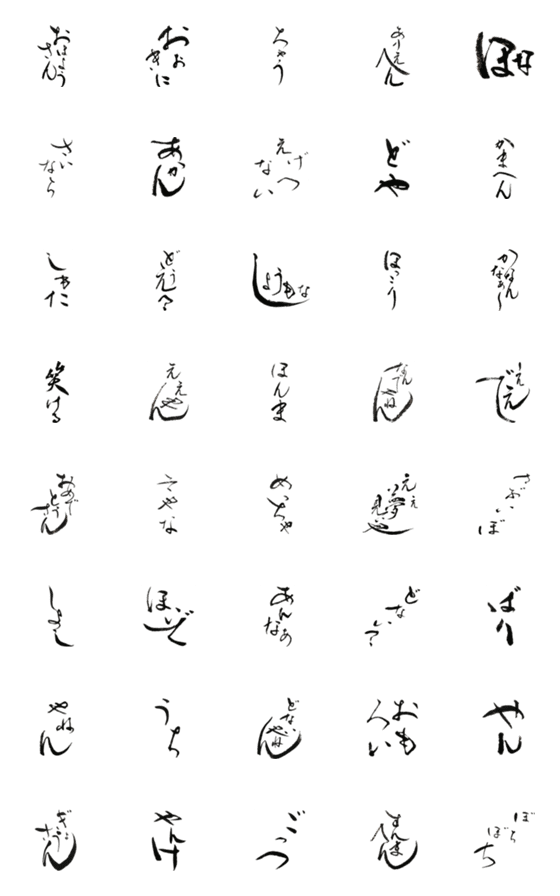 おはようさん
おおきに
ちゃう
ありえへん
ほな
さいなら
あっかん
えげつない
どや
かまへん
しもた
どうえ？
しょうもな
ほっこり
かなんなぁ〜
笑ける
ええやん
ほんま
なんでやねん
おめでとさん
そやな
めっちゃ
ええ夢見いや
さぶいぼ
あんなぁ
どない？
ばり
やねん
うち
どないやねん
おもろい
やん
ぎょうさん
やんけ
ごっつ
すんまへん
ぼちぼち